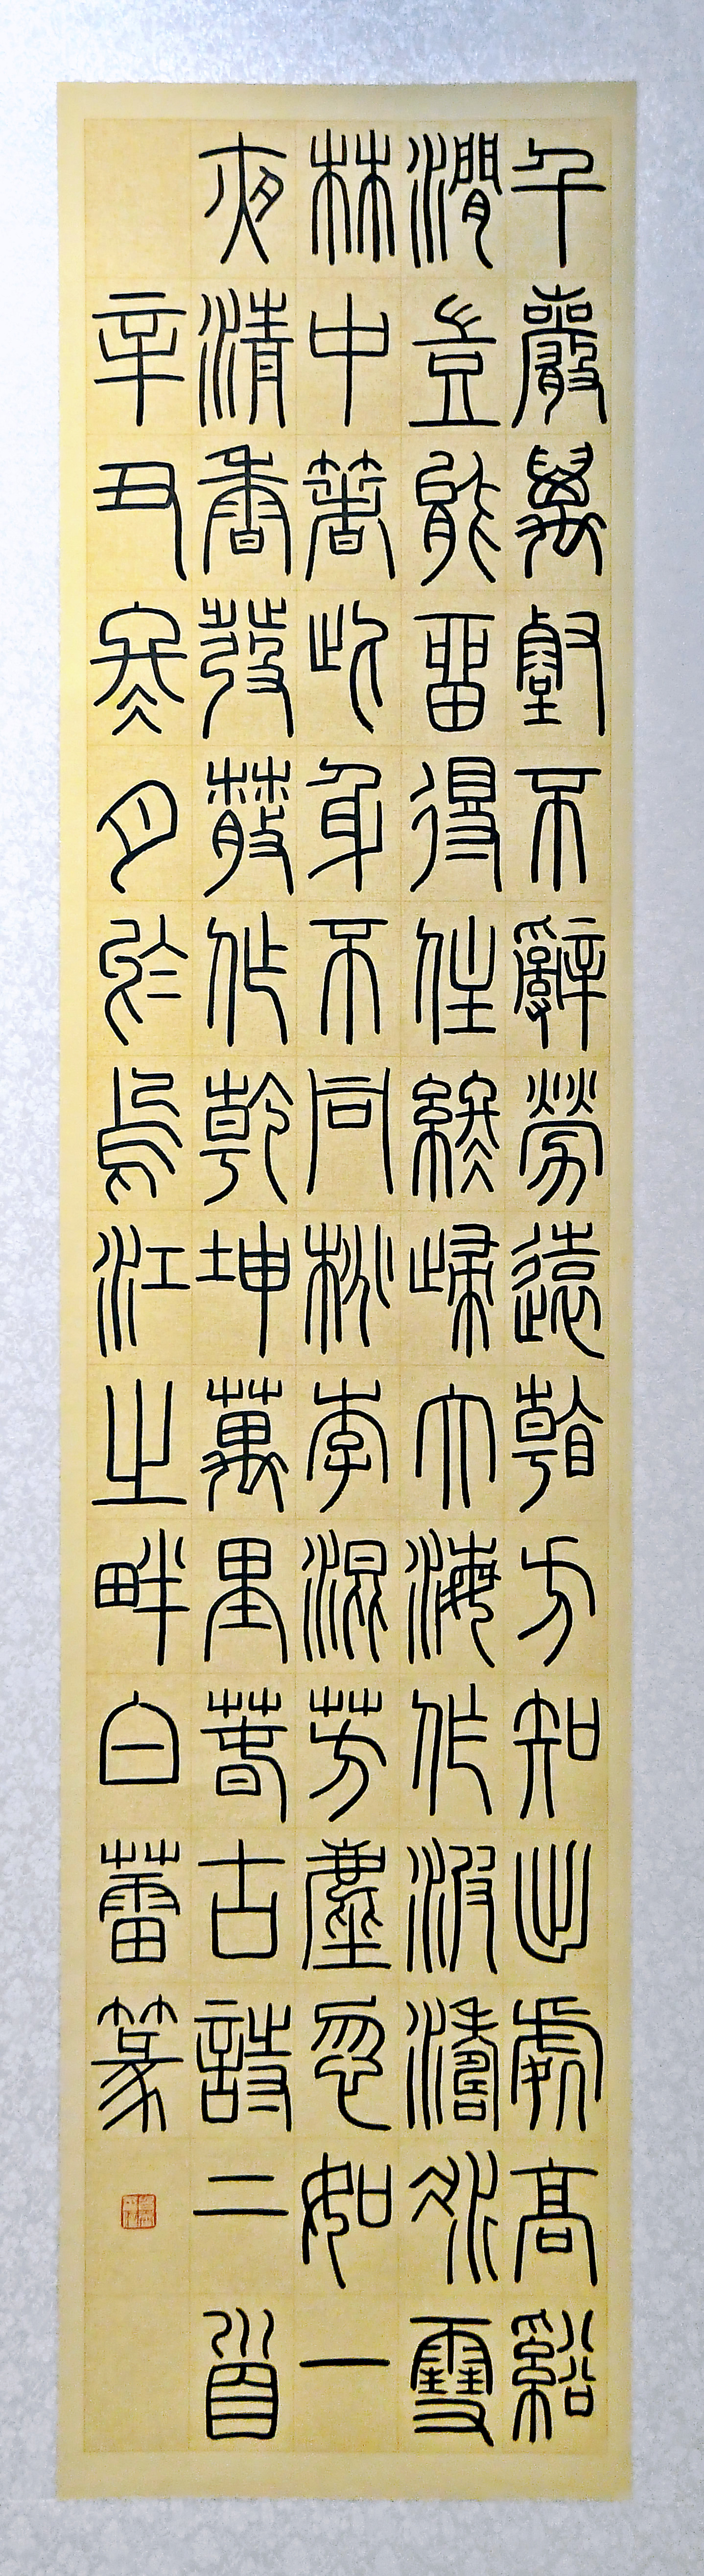 千巖萬壑不辭勞遠看方知出處高谿
澗豈能留得住終歸大海作波濤冰雪
林中著此身不同桃李混芳塵忽如一
夜清香發散作乾坤萬里春古詩二首
辛丑冬月於烏江之畔白蕾篆